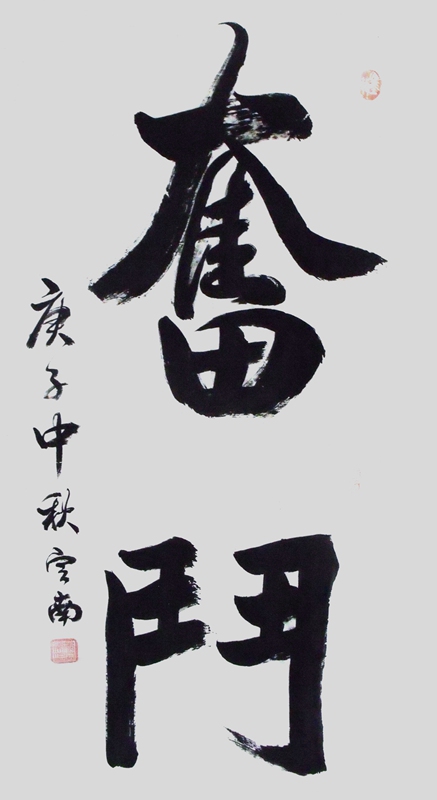 奮鬥
庚子中秋南